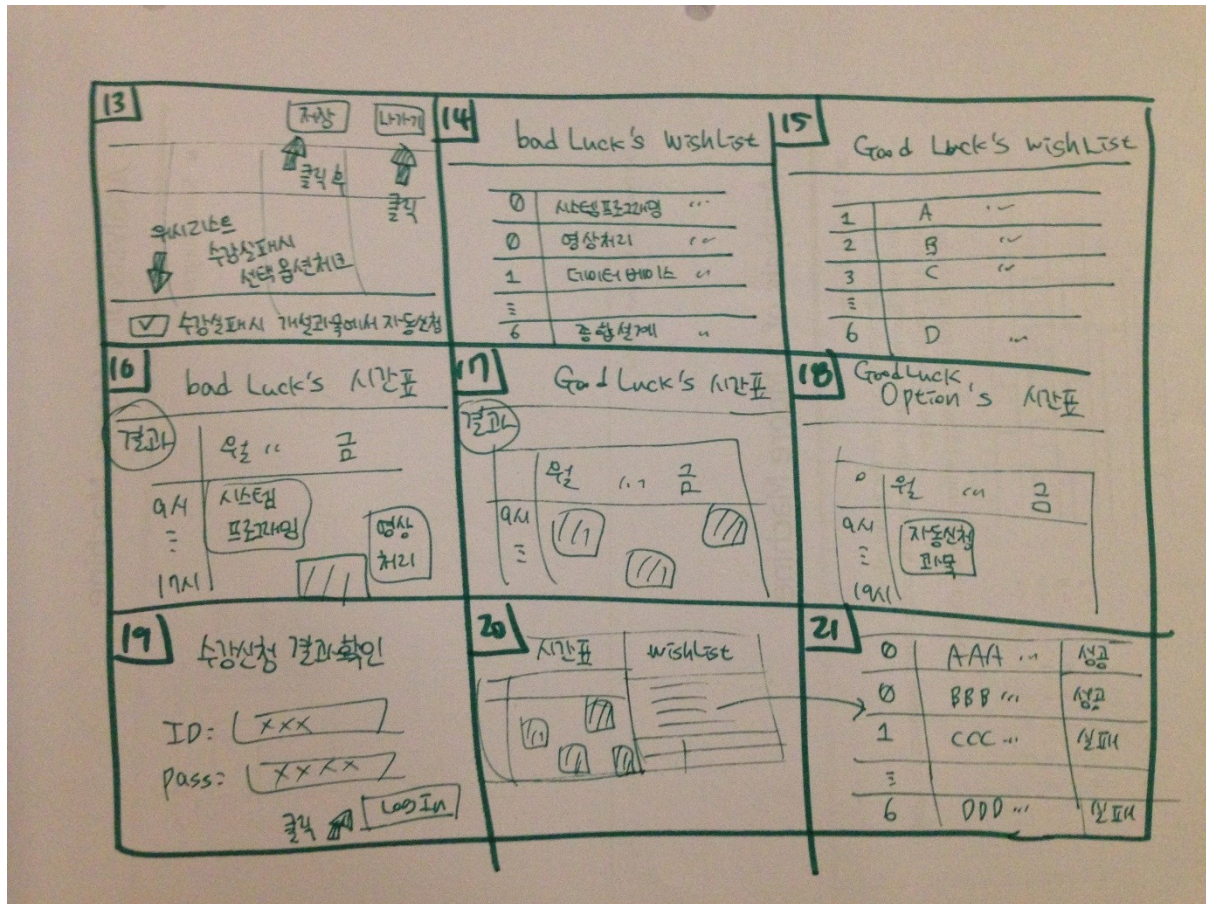 13
저장 나가기
클릭 후
클릭
위시리스트
수강실패시
선택옵션체크
수강실패시 개설과목에서 자동신청
14
bad Luck's WishList
0 시스템프로그래밍 ...
0 영상처리 ...
1 데이터베이스 ..
⋮
6 종합설계 ..
15
Good Luck's WishList
1 A ...
2 B ...
3 C ...
⋮
6 D ...
16
bad Luck's 시간표
결과
월 .. 금
9시 시스템
프로그래밍
⋮
영상
처리
17시
17
Good Luck's 시간표
결과
월 ... 금
9시
⋮
18
GoodLuck
Option's 시간표
0 월 ... 금
9시 자동신청
⋮ 과목
19시
19
수강신청 결과확인
ID: xxx
pass: xxxx
클릭 LogIn
20
시간표 WishList
21
0 AAA ... 성공
0 BBB ... 성공
1 CCC ... 실패
⋮
6 DDD ... 실패